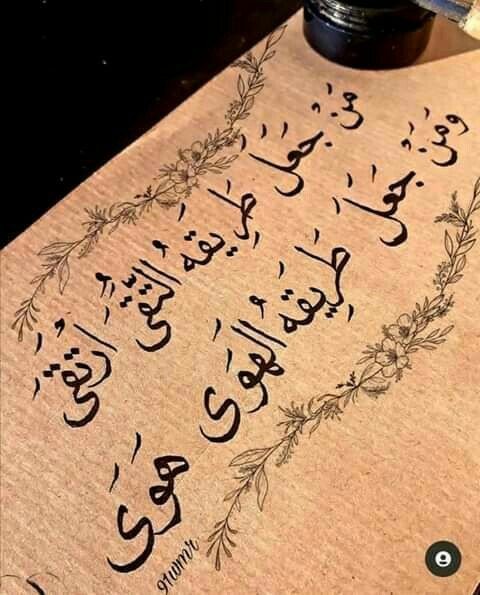 مَنْ جَعَلَ طَرِيقَهُ التُّقَى ارْتَقَى
وَمَنْ جَعَلَ طَرِيقَهُ الهَوَى هَوَى
91wmr